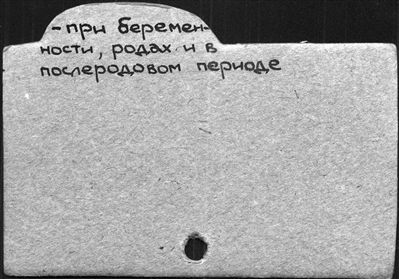 - при беремен-
ности, родах и в
послеродовом периоде